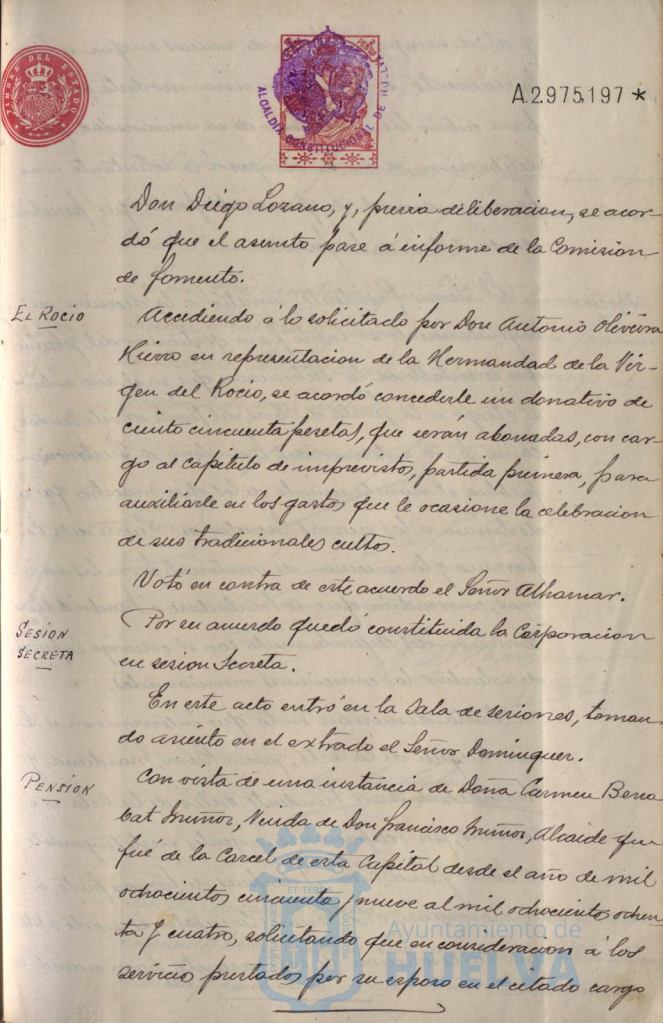 TIMBRE DEL ESTADO
ALCALDIA CONSTITUCIONAL DE HUELVA
A.2975,197 *
Don Diego Lozano, y, previa deliberacion, se acor-
dó que el asunto pase á informe de la Comision
de fomento.
EL ROCIO
Accediendo á lo solicitado por Don Antonio Oliveira
Hierro en representacion de la Hermandad de la Vír-
gen del Rocio, se acordó concederle un donativo de
ciento cincuenta pesetas, que serán abonadas, con car-
go al capitulo de imprevistos, partida primera, para
auxiliarle en los gastos que le ocasione la celebracion
de sus tradicionales cultos.
Votó en contra de este acuerdo el Señor Alhamar.
SESION
SECRETA
Por su acuerdo quedó constituida la Corporacion
en sesion Secreta.
En este acto entró en la Sala de sesiones, toman-
do asiento en el extrado el Señor Dominguez.
PENSION
Con vista de una instancia de Doña Carmen
Muñoz, Viuda de Don Francisco Muñoz, Alcaide que
fué de la Carcel de esta Capital desde el año de mil
ochocientos cincuenta y nueve al mil ochocientos ochen-
ta y cuatro, solicitando que en consideracion á los
servicio prestados por su esposo en el citado cargo
Ayuntamiento de
HUELVA